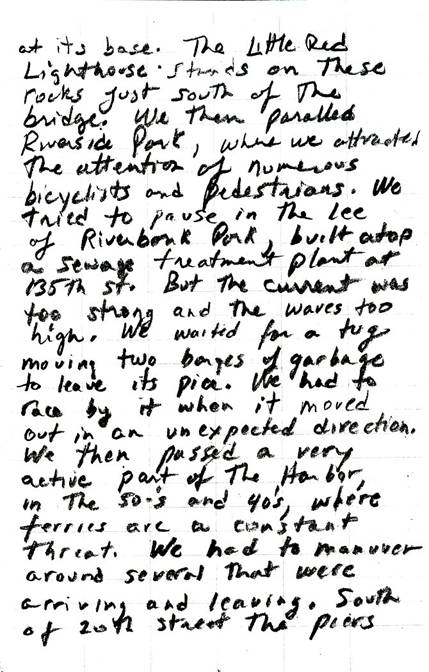 at its base. The Little Red
Lighthouse stands on these
rocks just south of the
bridge. We then paralled
Riverside Park, where we attracted
the attention of numerous
bicyclists and pedestrians. We
tried to pause in the lee
of Riverbank Park, built atop
a sewage treatment plant at
135th st. But the current was
too strong and the waves too
high. We waited for a tug
moving two barges of garbage
to leave its pier. We had to
race by it when it moved
out in an unexpected direction.
We then passed a very
active part of the Harbor,
in the 50's and 40's, where
ferries are a constant
threat. We had to manuver
around several that were
arriving and leaving. South
of 20th street the piers